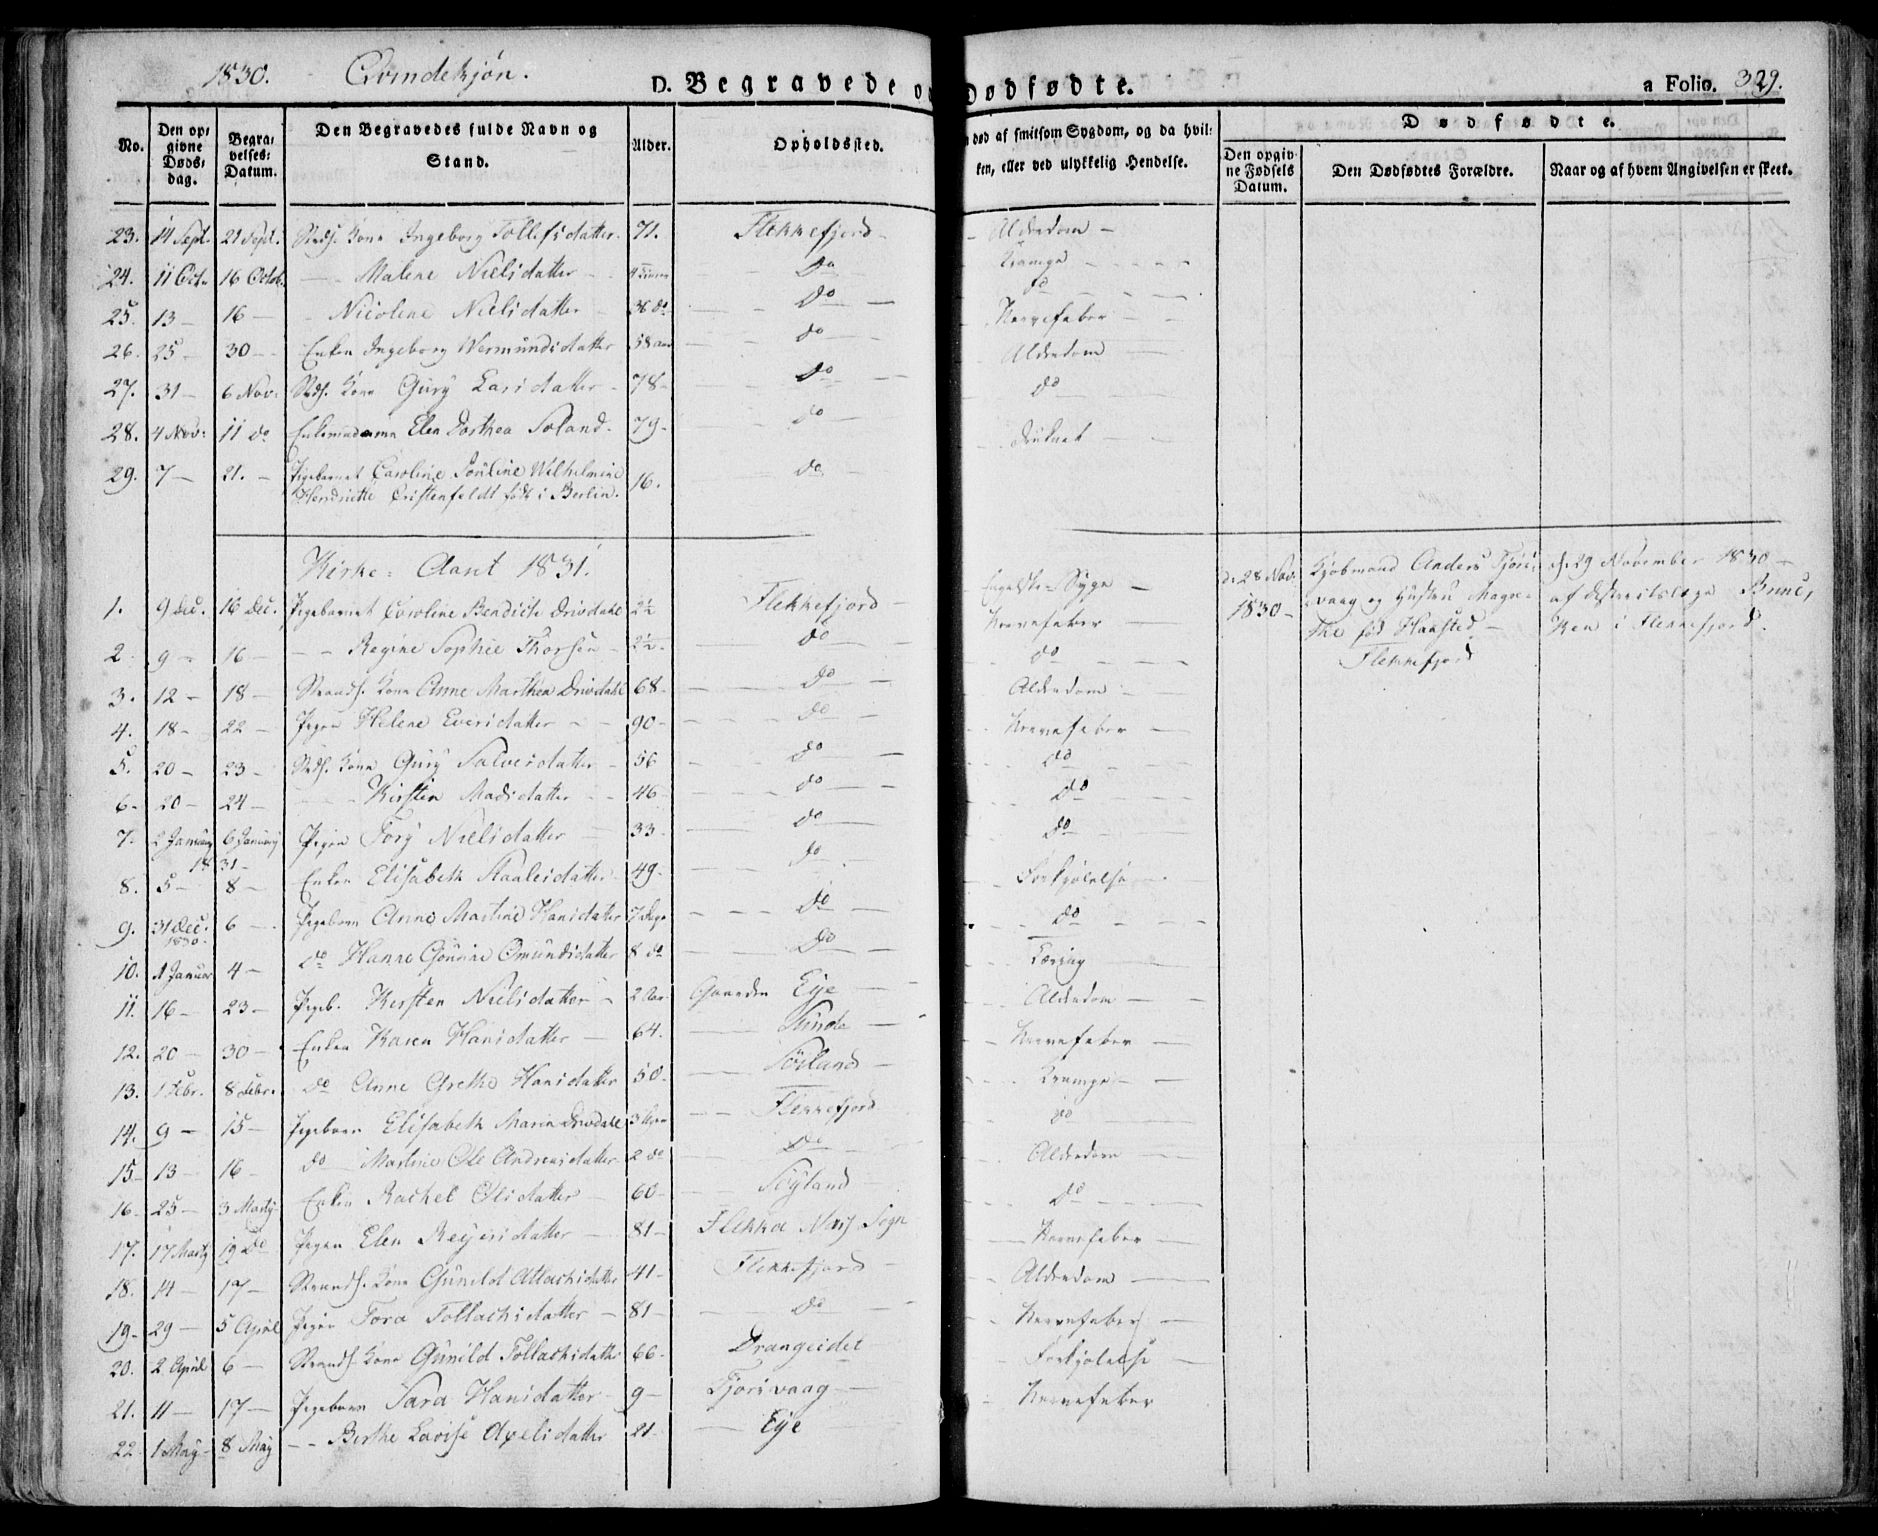 1830. Qvindekjøn. D. Begravede og Dødfødte. a Folio. 329.
No. Den opgivne Dødsdag. Begravelses Datum. Den Begravedes fulde Navn og Stand. Alder. Opholdssted. død af smitsom Sygdom, og da hvilken, eller ved ulykkelig Hendelse. Dødfødte.
Den opgivne Fødsels Datum. Den Dødfødtes Forældre. Naar og af hvem Angivelsen er skeet.
23. 14 Sept. 21 Sept. Kone Ingeborg Tollefsdatter 71. Flekkefjord Alderdom
24. 11 Oct. 16 Octob. Malene Nielsdatter 4 Do Krampe
25. 13 16 Nicolene Nielsdatter 36 do Do do
26. 25 30 Enken Ingeborg Wermundsdatter 58 Aar do Nervefeber
27. 31 6 Nov. Kone Gury Larsdatter 78 Do Alderdom
28. 4 Nov. 11 do Enkemadame Elen Dorthea Soland 79 do do
29. 7 21. Pigebarnet Caroline Pouline Wilhelmine 16. do druknet
Hendriette Cristenfeldt født i Berlin.
Kirke-Aaret 1831.
1. 9 Dec. 16 Dec. Pigebarnet Caroline Bendicte Drivdahl 2½ Flekkefjord Engelske-Syge
2. 9 16 Regine Sophie Thorsen 2½ do Nervefeber
3. 12 18 Strands. Kone Anne Marthea Drivdahl 68 do do
4. 18 22 Pigen Helene Eversdatter 90 do Alderdom
5. 20 23 Kone Gury Salvesdatter 56 do Nervefeber
6. 20 24 Kirsten Madsdatter 46 do do
7. 2 January 6 January Pigen Tory Nielsdatter 33 do Do
1831
8. 5 8 Enken Elisabeth Staalesdatter 49 do Do
9. 31 Dec. 1830. 6 Pigebarn Anne Martine Hansdatter 7 Dage do Forkjølelse
10. 1 Januar 4 do Hanne Gurine Omundsdatter 8 do Do do
11. 16 23 Pigeb. Kirsten Nielsdatter 2 Aar Gaarden Eye Tæring
12. 20 30 Enken Karen Hansdatter 64. Sunde Alderdom
13. 1 Febr. 8 Febr. do Anne Grethe Hansdatter 50 Søiland Nervefeber
14. 9 15 Pigebarn Elisabeth Maria Drivdahl 3 Flekkefjord Krampe
15. 13 16 do Martine Ole Andreasdatter 2 do Do do
16. 25 3 Marty Enken Rachel Olsdatter 60 Søyland Alderdom
17. 17 Marty 19 Do Pigen Elen Reyersdatter 81 Flekke Næs Sogn Do
18. 14 17 Strands. Kone Gunild Atlachsdatter 41 Flekkefjord Nervefeber
19. 29 5 April Pigen Tora Tollachsdatter 81 do Alderdom
20. 2 April 6 Strands. Kone Gunild Tollachsdatter 66 Drangeidet Nervefeber
21. 11 17 Pigebarn Sara Hansdatter 9 Fjorsvaag Forkjølelse
22. 1 May 8 May Berthe Lovise Axelsdatter 21 Eye Nervefeber
d. 28 Nov. 1830 Kjøbmand Anders Fjorsvaag og Hustru Magrethe fød Haasted Flekkefjord
d. 29 November 1830 af Districtslæge Bruun, Ken i Flekkefjord.